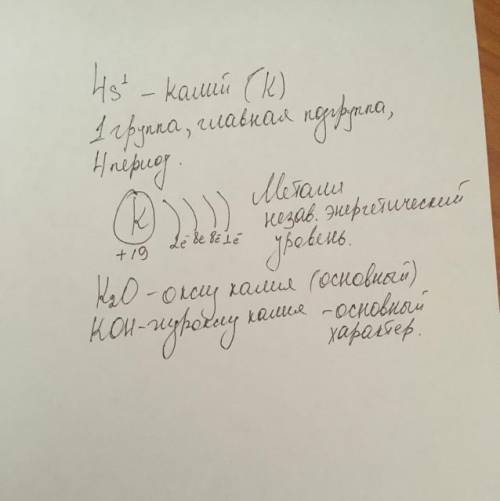 4s¹ – калий (K)
1 группа, главная подгруппа,
4 период.
K +19 2ē 8ē 8ē 1ē
Металл
незав. энергетический
уровень.
K₂O – оксид калия (основный)
KOH – гидроксид калия – основный
характер.